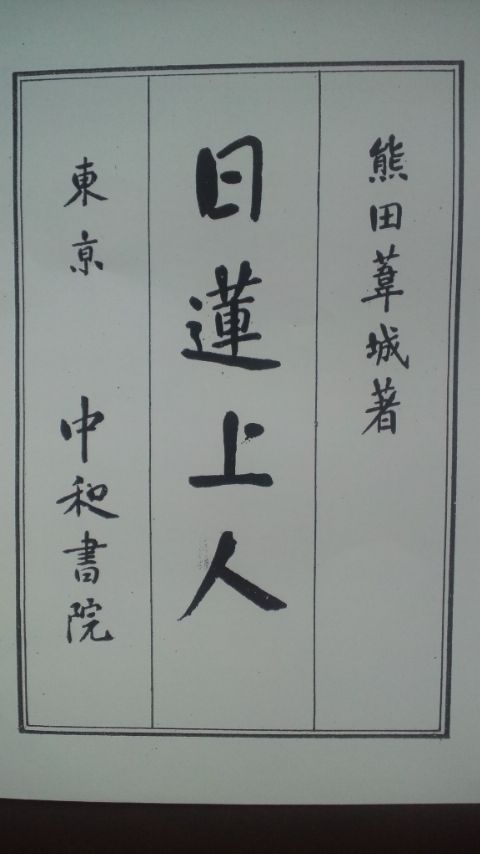 熊田葦城著
日蓮上人
東京 中和書院